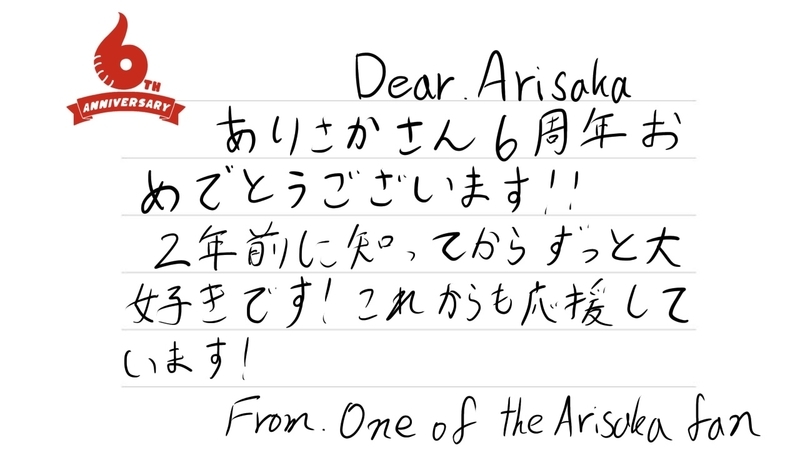 6TH
ANNIVERSARY
Dear. Arisaka
ありさかさん6周年お
めでとうございます!!
2年前に知ってからずっと大
好きです!これからも応援して
います!
From. One of the Arisaka fan